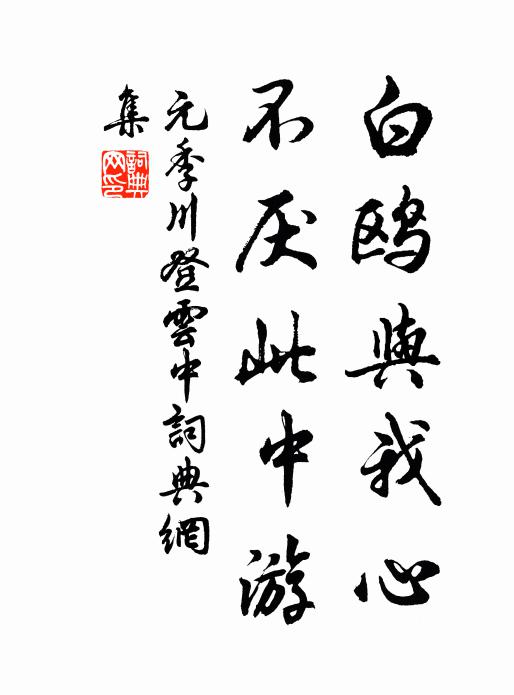 白鸥與我心
不厌此中游
元季川登雲中詞典網
集
詞典网印